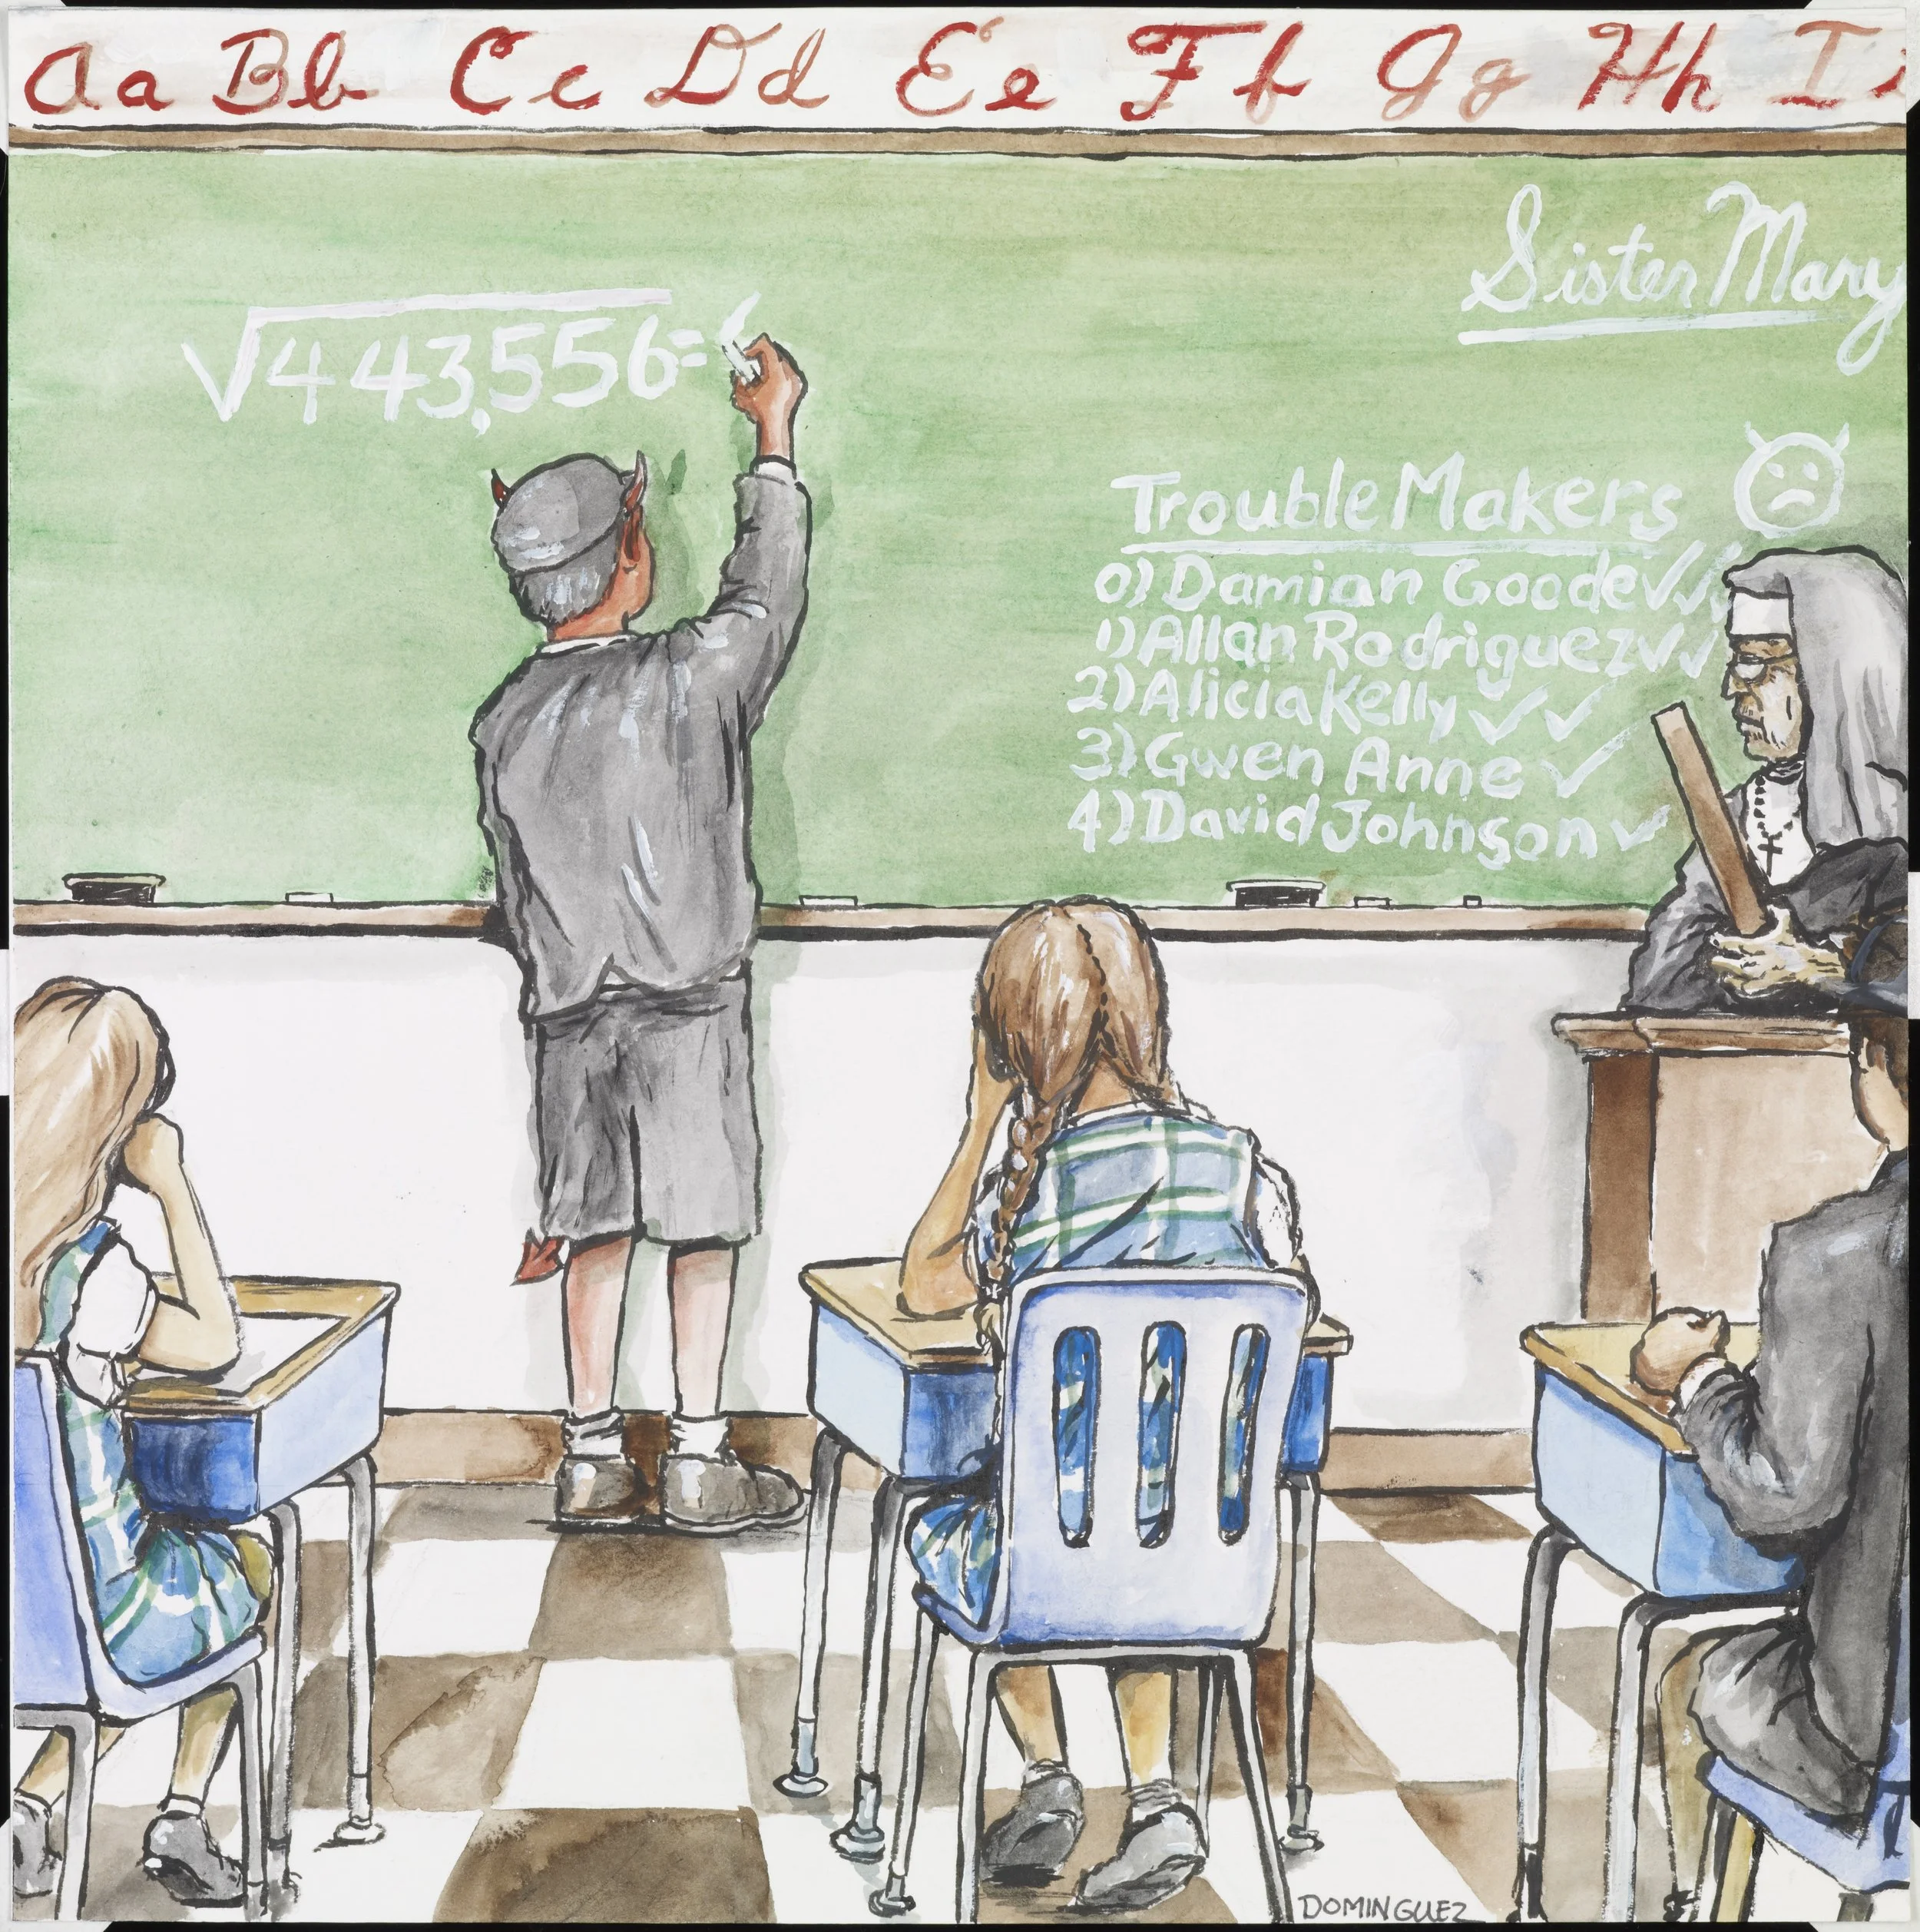 Aa Bb Cc Dd Ee Ff Gg Hh Ii
Sister Mary
√443,556=6
Trouble Makers
0) Damian Goode ✓✓✓
1) Allan Rodriguez ✓✓
2) Alicia Kelly ✓✓
3) Gwen Anne ✓
4) David Johnson ✓
DOMINGUEZ